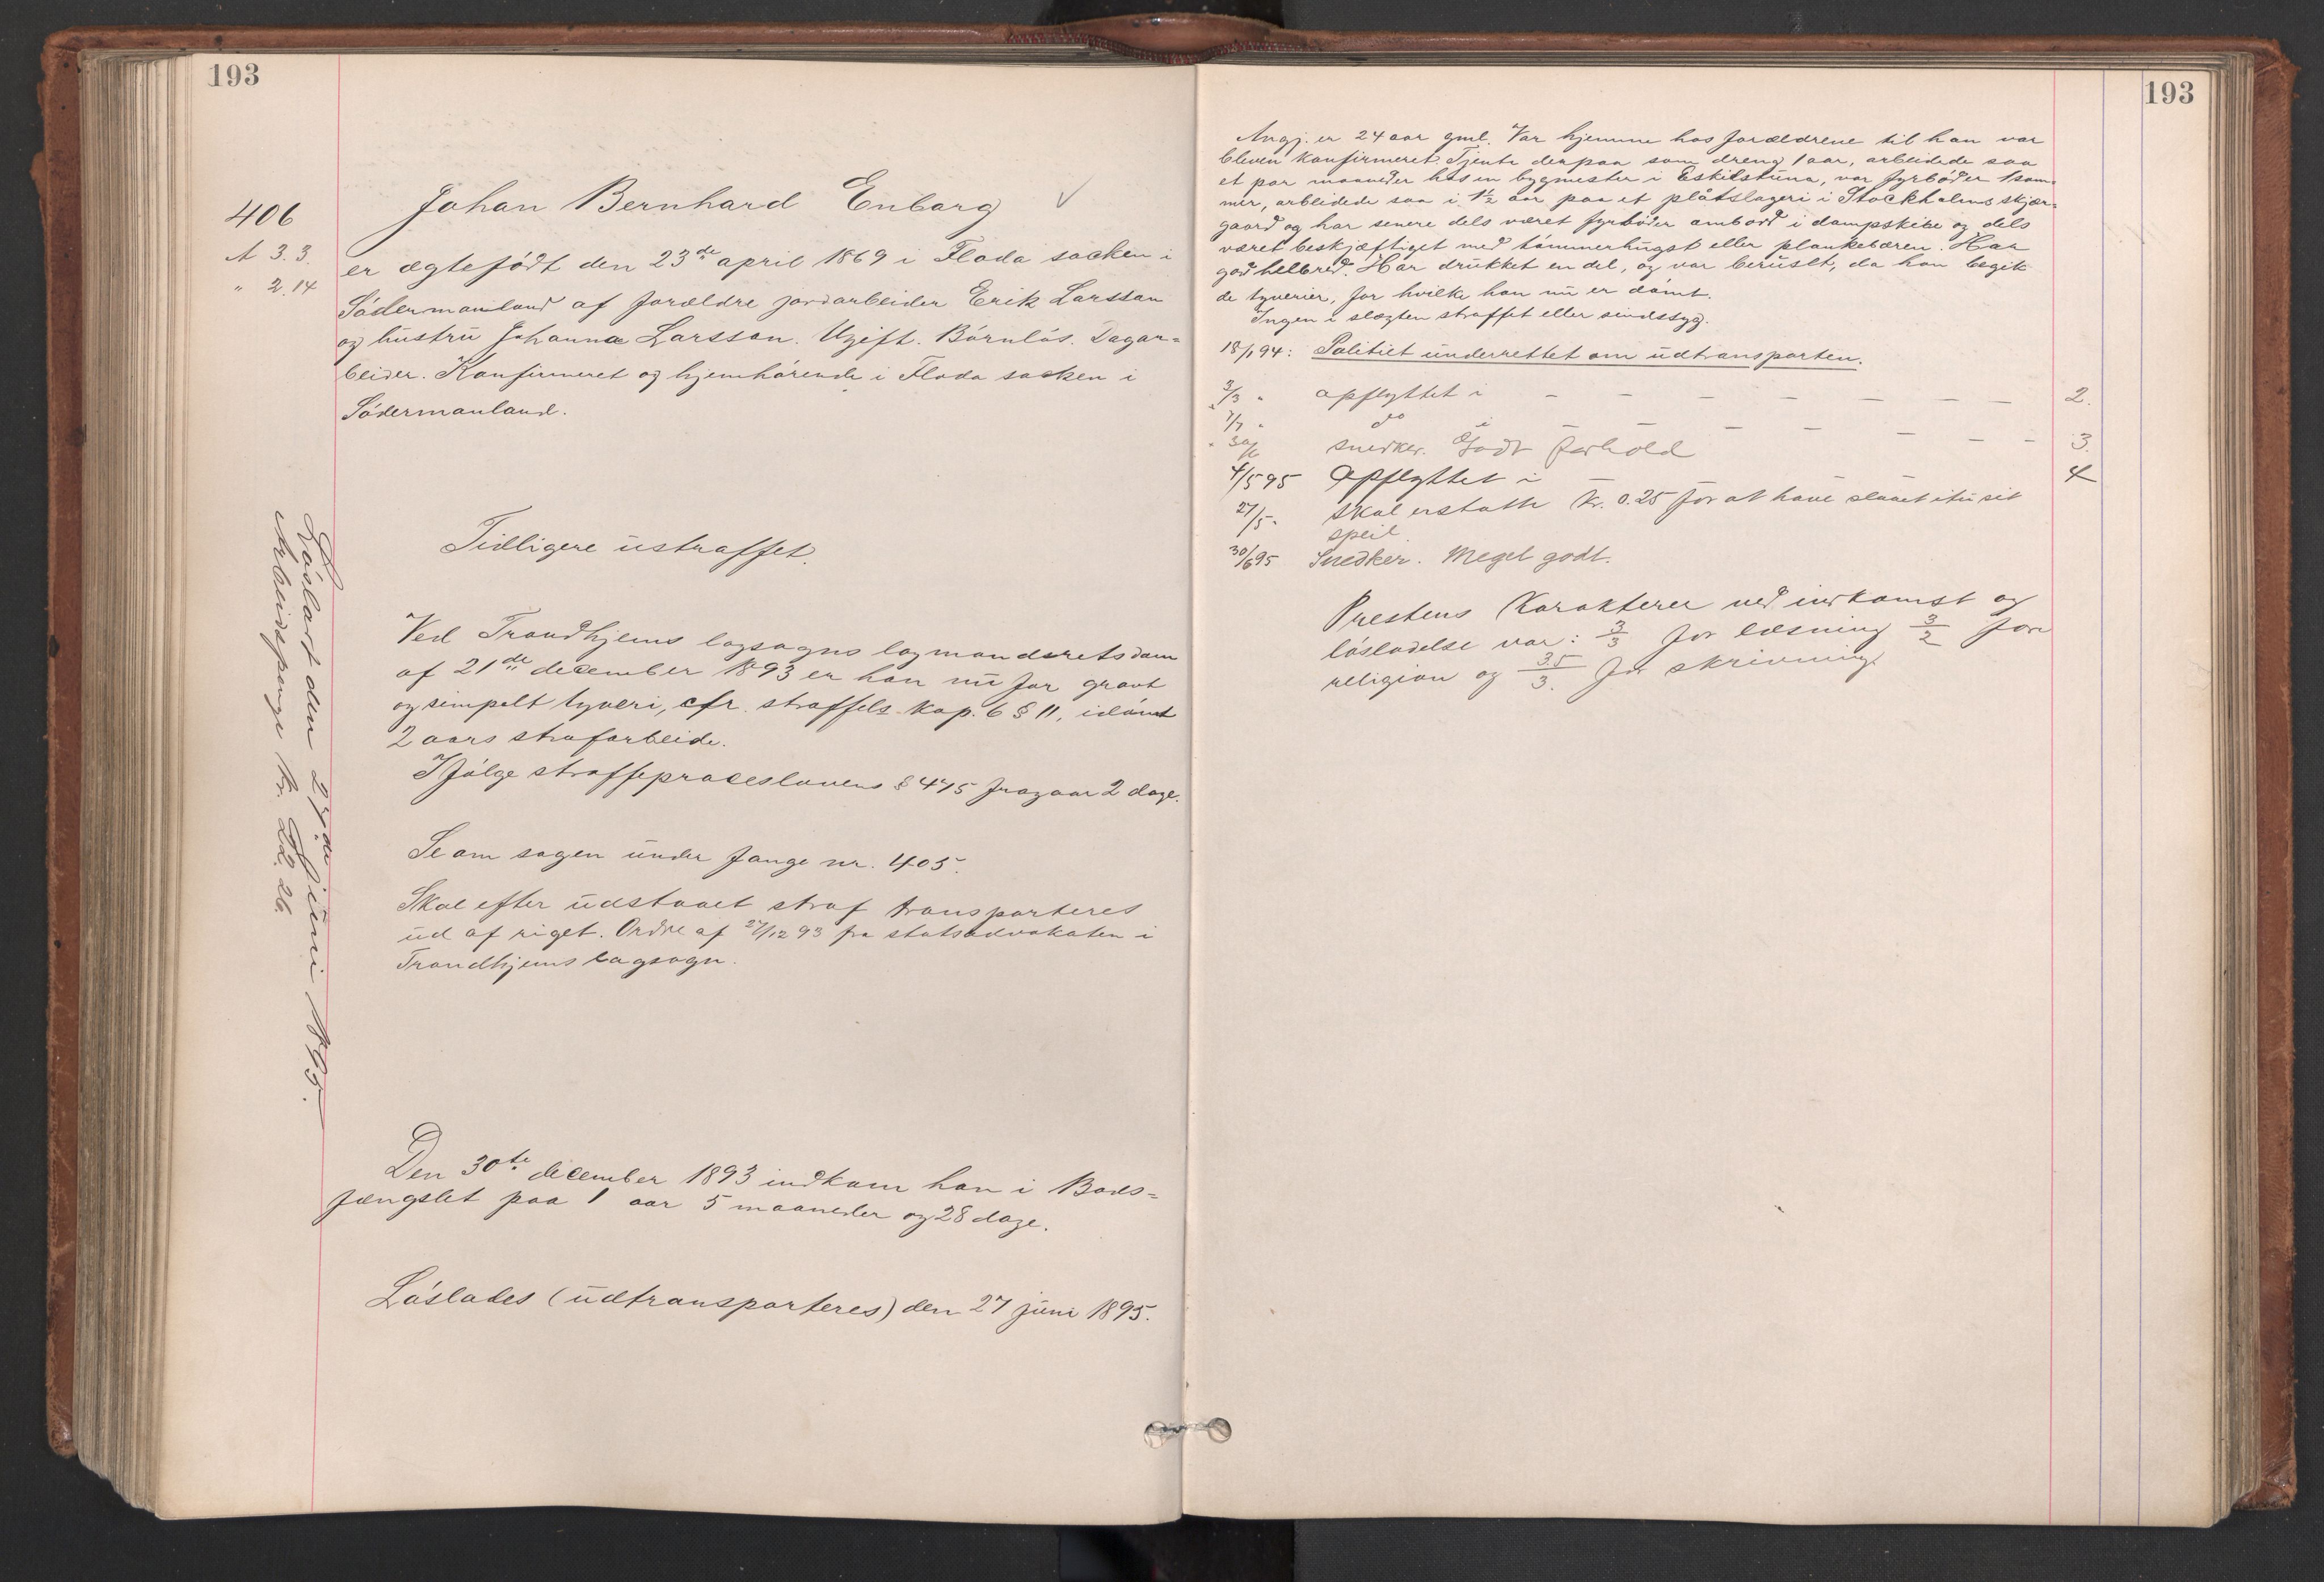 193
406
A 3.3.
" 2.14
Johan Bernhard Enbarg ✓
er ægtefødt den 23de april 1869 i Floda socken i
Södermanland af forældre jordarbeider Erik Larsson
og hustru Johanna Larsson. Ugift. Børnløs. Dagar=
beider. Konfirmeret og hjemhørende i Floda socken i
Södermanland.
Tidligere ustraffet.
Ved Trondhjems lagsogns lagmandsrets dom
af 21de december 1893 er han nu for grovt
og simpelt tyveri, cfr. straffels. kap. 6 § 11, idømt
2 aars strafarbeide.
Ifølge straffeproceslovens § 475 fragaar 2 dage.
Se om sagen under fange nr. 405.
Skal efter udstaaet straf transporteres
ud af riget. Ordre af 27/12 93 fra statsadvokaten i
Trondhjems lagsogn.
Den 30te december 1893 indkom han i Bods=
fængslet paa 1 aar 5 maaneder og 28 dage.
Løslades (udtransporteres) den 27 juni 1895.
Løsladt den 27de juni 1895.
Arbeidspenge kr. 22,26.
193
Angj. er 24 aar gml. Var hjemme hos forældrene til han var
bleven konfirmeret. Tjente derpaa som dreng 1 aar, arbeidede saa
et par maaneder hos en bygmester i Eskilstuna, var fyrbøder 1 som=
mer, arbeidede saa i 1½ aar paa et plåtslageri i Stockholms skjær=
gaard og har senere dels været fyrbøder ombord i dampskibe og dels
været beskjæftiget med tømmerhugst eller plankebæren. Har
god helbred. Har drukket en del, og var beruset, da han begik
de tyverier, for hvilke han nu er dømt.
Ingen i slægten straffet eller sindssyg.
18/1 94: Politiet underrettet om udtransporten.
3/3 " opflyttet i — — — — — — — 2.
7/7 " do i — — — — — — 3.
" 30/6 snedker. Godt forhold
4/5 95 Opflyttet i — — 4
27/5 " Skal erstatte kr. 0.25 for at have slaaet itu sit
speil.
30/6 95 Snedker. Meget godt.
Prestens karakterer ved indkomst og
løsladelse var: 3/3 for læsning 3/2 for
religion og 3.5/3. for skrivning.